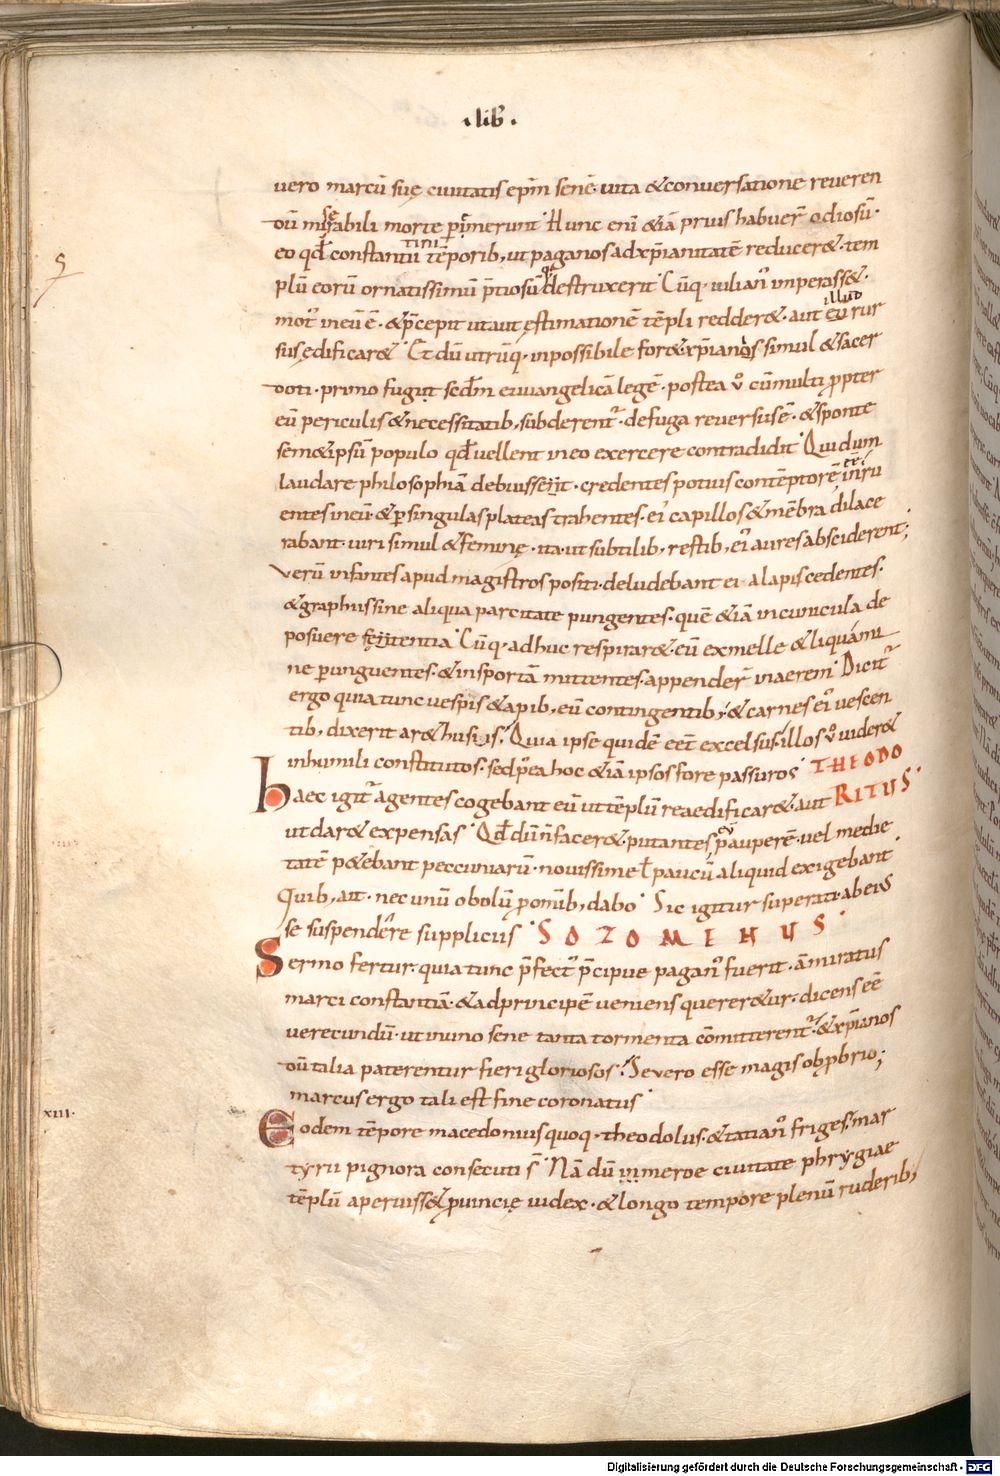 .lib̄.
uero marcū suę ciuitatis ep̄m senē· uita &conuersatione reueren
dū miserabili morte p̄imerunt· Hunc enī &iā prius habuer̄ odiosū·
eo qd̄ constantini tēporib; ut paganos adxp̄ianitatē reducer&· tem
plū eorū ornatissimū p̄tiosūq; destruxerit· Cūq· iulian᾽ imperass&·
mot᾽ ineū ē· &p̄cepit utaut ęstimationē tēpli redder&· aut illud rur
sus ędificar&· Et dū utrūq· inpossibile for& xp̄ianis simul &sacer
doti· primo fugit secd̄m euuangelicā legē· postea ū cū multi ꝓpter
eū periculis &necessitatib; subderent᾽· defuga reuersus ē· &sponte
sem&ipsū populo qd̄ uellent ineo exercere contradidit· Qui dum
laudare philosophiā debuissent· credentes potius contēptorē eē· inru
entes ineū· &p̄ singulas plateas trahentes· ei᾽ capillos &mēbra dilace
rabant· uiri simul &feminę· ita ut subtilib; restib; ei᾽ aures absciderent;
Verū infantes apud magistros positi· deludebant ei alapis cedentes·
&graphiis sine aliqua parcitate pungentes· quē &iā incunicula de
posuere fetentia· Cūq· adhuc respirar&· eū exmelle &liquami
ne perunguentes· &insportā mittentes· appender̄ inaerem· Dicit᾽
ergo quia tunc uespis &apib; eū contingentib; &carnes ei᾽ uescen
tib; dixerit ar&husiis· Quia ipse quidē eēt excelsus· illos ū uider&
inhumili constitutos· sed p̄ea hoc &iā ipsos fore passuros· THEODO
haec igit᾽ agentes cogebant eū ut tēplū reaedificar&· aut RITUS·
ut dar& expensas· Qd̄ dū n̄ facer&· putantes eū pauperē· uel medie
tatē p&ebant peccuniarū· nouissime ł paucū aliquid exigebant·
Quib; ait· nec unū obolū p̄ omīb; dabo· Sic igitur superati· abeius
se suspender̄e suppliciis· SOZOMENUS·
Sermo fertur· quia tunc p̄fect᾽ p̄cipue pagan᾽ fuerit· āmiratus
marci constantiā· &adprincipē ueniens quereretur· dicens eē
uerecundū· ut inuno sene tanta tormenta cōmitterent᾽· &xp̄ianos
dū talia paterentur fieri gloriosos· Se uero esse magis obꝓbrio;
marcus ergo tali est fine coronatus·
XIII·
Eodem tēpore macedonius quoq· theodolus· &tatian᾽ friges· mar
tyrii pignora consecuti s̄· Nā dū in meroe ciuitate phrygiae
tēplū aperuiss& ꝓuincię iudex· &longo tempore plenū ruderib;
Digitalisierung gefördert durch die Deutsche Forschungsgemeinschaft - DFG